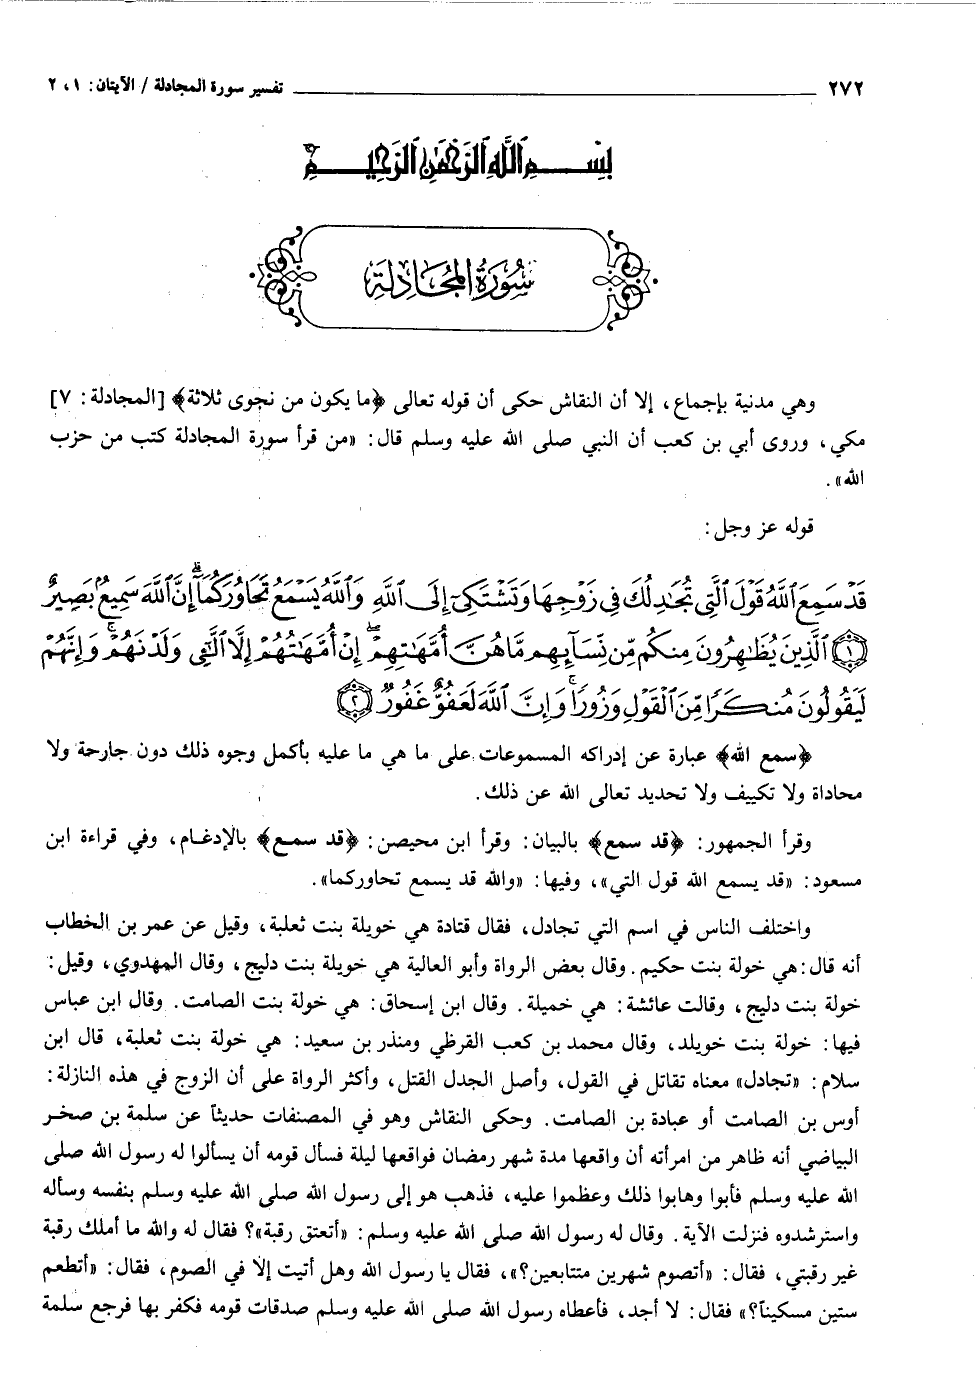 ٢٧٢ تفسير سورة المجادلة / الآيتان: ١، ٢
بِسْمِ اللَّهِ الرَّحْمَٰنِ الرَّحِيمِ
سُورَةُ المُجَادلة
وهي مدنية بإجماع، إلا أن النقاش حكى أن قوله تعالى ﴿ما يكون من نجوى ثلاثة﴾ [المجادلة: ٧]
مكي، وروى أبي بن كعب أن النبي صلى الله عليه وسلم قال: «من قرأ سورة المجادلة كتب من حزب
الله».
قوله عز وجل:
قَدْ سَمِعَ اللَّهُ قَوْلَ الَّتِي تُجَادِلُكَ فِي زَوْجِهَا وَتَشْتَكِي إِلَى اللَّهِ وَاللَّهُ يَسْمَعُ تَحَاوُرَكُمَا ۚ إِنَّ اللَّهَ سَمِيعٌ بَصِيرٌ
﴿١﴾ الَّذِينَ يُظَاهِرُونَ مِنكُم مِّن نِّسَائِهِم مَّا هُنَّ أُمَّهَاتِهِمْ ۖ إِنْ أُمَّهَاتُهُمْ إِلَّا اللَّائِي وَلَدْنَهُمْ ۚ وَإِنَّهُمْ
لَيَقُولُونَ مُنكَرًا مِّنَ الْقَوْلِ وَزُورًا ۚ وَإِنَّ اللَّهَ لَعَفُوٌّ غَفُورٌ ﴿٢﴾
﴿سمع الله﴾ عبارة عن إدراكه المسموعات على ما هي ما عليه بأكمل وجوه ذلك دون جارحة ولا
محاداة ولا تكييف ولا تحديد تعالى الله عن ذلك.
وقرأ الجمهور: ﴿قد سمع﴾ بالبيان: وقرأ ابن محيصن: ﴿قد سمع﴾ بالإدغام، وفي قراءة ابن
مسعود: «قد يسمع الله قول التي»، وفيها: «والله قد يسمع تحاوركما».
واختلف الناس في اسم التي تجادل، فقال قتادة هي خويلة بنت ثعلبة، وقيل عن عمر بن الخطاب
أنه قال: هي خولة بنت حكيم. وقال بعض الرواة وأبو العالية هي خويلة بنت دليج، وقال المهدوي، وقيل:
خولة بنت دليج، وقالت عائشة: هي خميلة. وقال ابن إسحاق: هي خولة بنت الصامت. وقال ابن عباس
فيها: خولة بنت خويلد، وقال محمد بن كعب القرظي ومنذر بن سعيد: هي خولة بنت ثعلبة، قال ابن
سلام: «تجادل» معناه تقاتل في القول، وأصل الجدل القتل، وأكثر الرواة على أن الزوج في هذه النازلة:
أوس بن الصامت أو عبادة بن الصامت. وحكى النقاش وهو في المصنفات حديثاً عن سلمة بن صخر
البياضي أنه ظاهر من امرأته أن واقعها مدة شهر رمضان فواقعها ليلة فسأل قومه أن يسألوا له رسول الله صلى
الله عليه وسلم فأبوا وهابوا ذلك وعظموا عليه، فذهب هو إلى رسول الله صلى الله عليه وسلم بنفسه وسأله
واسترشدوه فنزلت الآية. وقال له رسول الله صلى الله عليه وسلم: «أتعتق رقبة»؟ فقال له والله ما أملك رقبة
غير رقبتي، فقال: «أتصوم شهرين متتابعين؟»، فقال يا رسول الله وهل أتيت إلا في الصوم، فقال: «أتطعم
ستين مسكيناً؟» فقال: لا أجد، فأعطاه رسول الله صلى الله عليه وسلم صدقات قومه فكفر بها فرجع سلمة